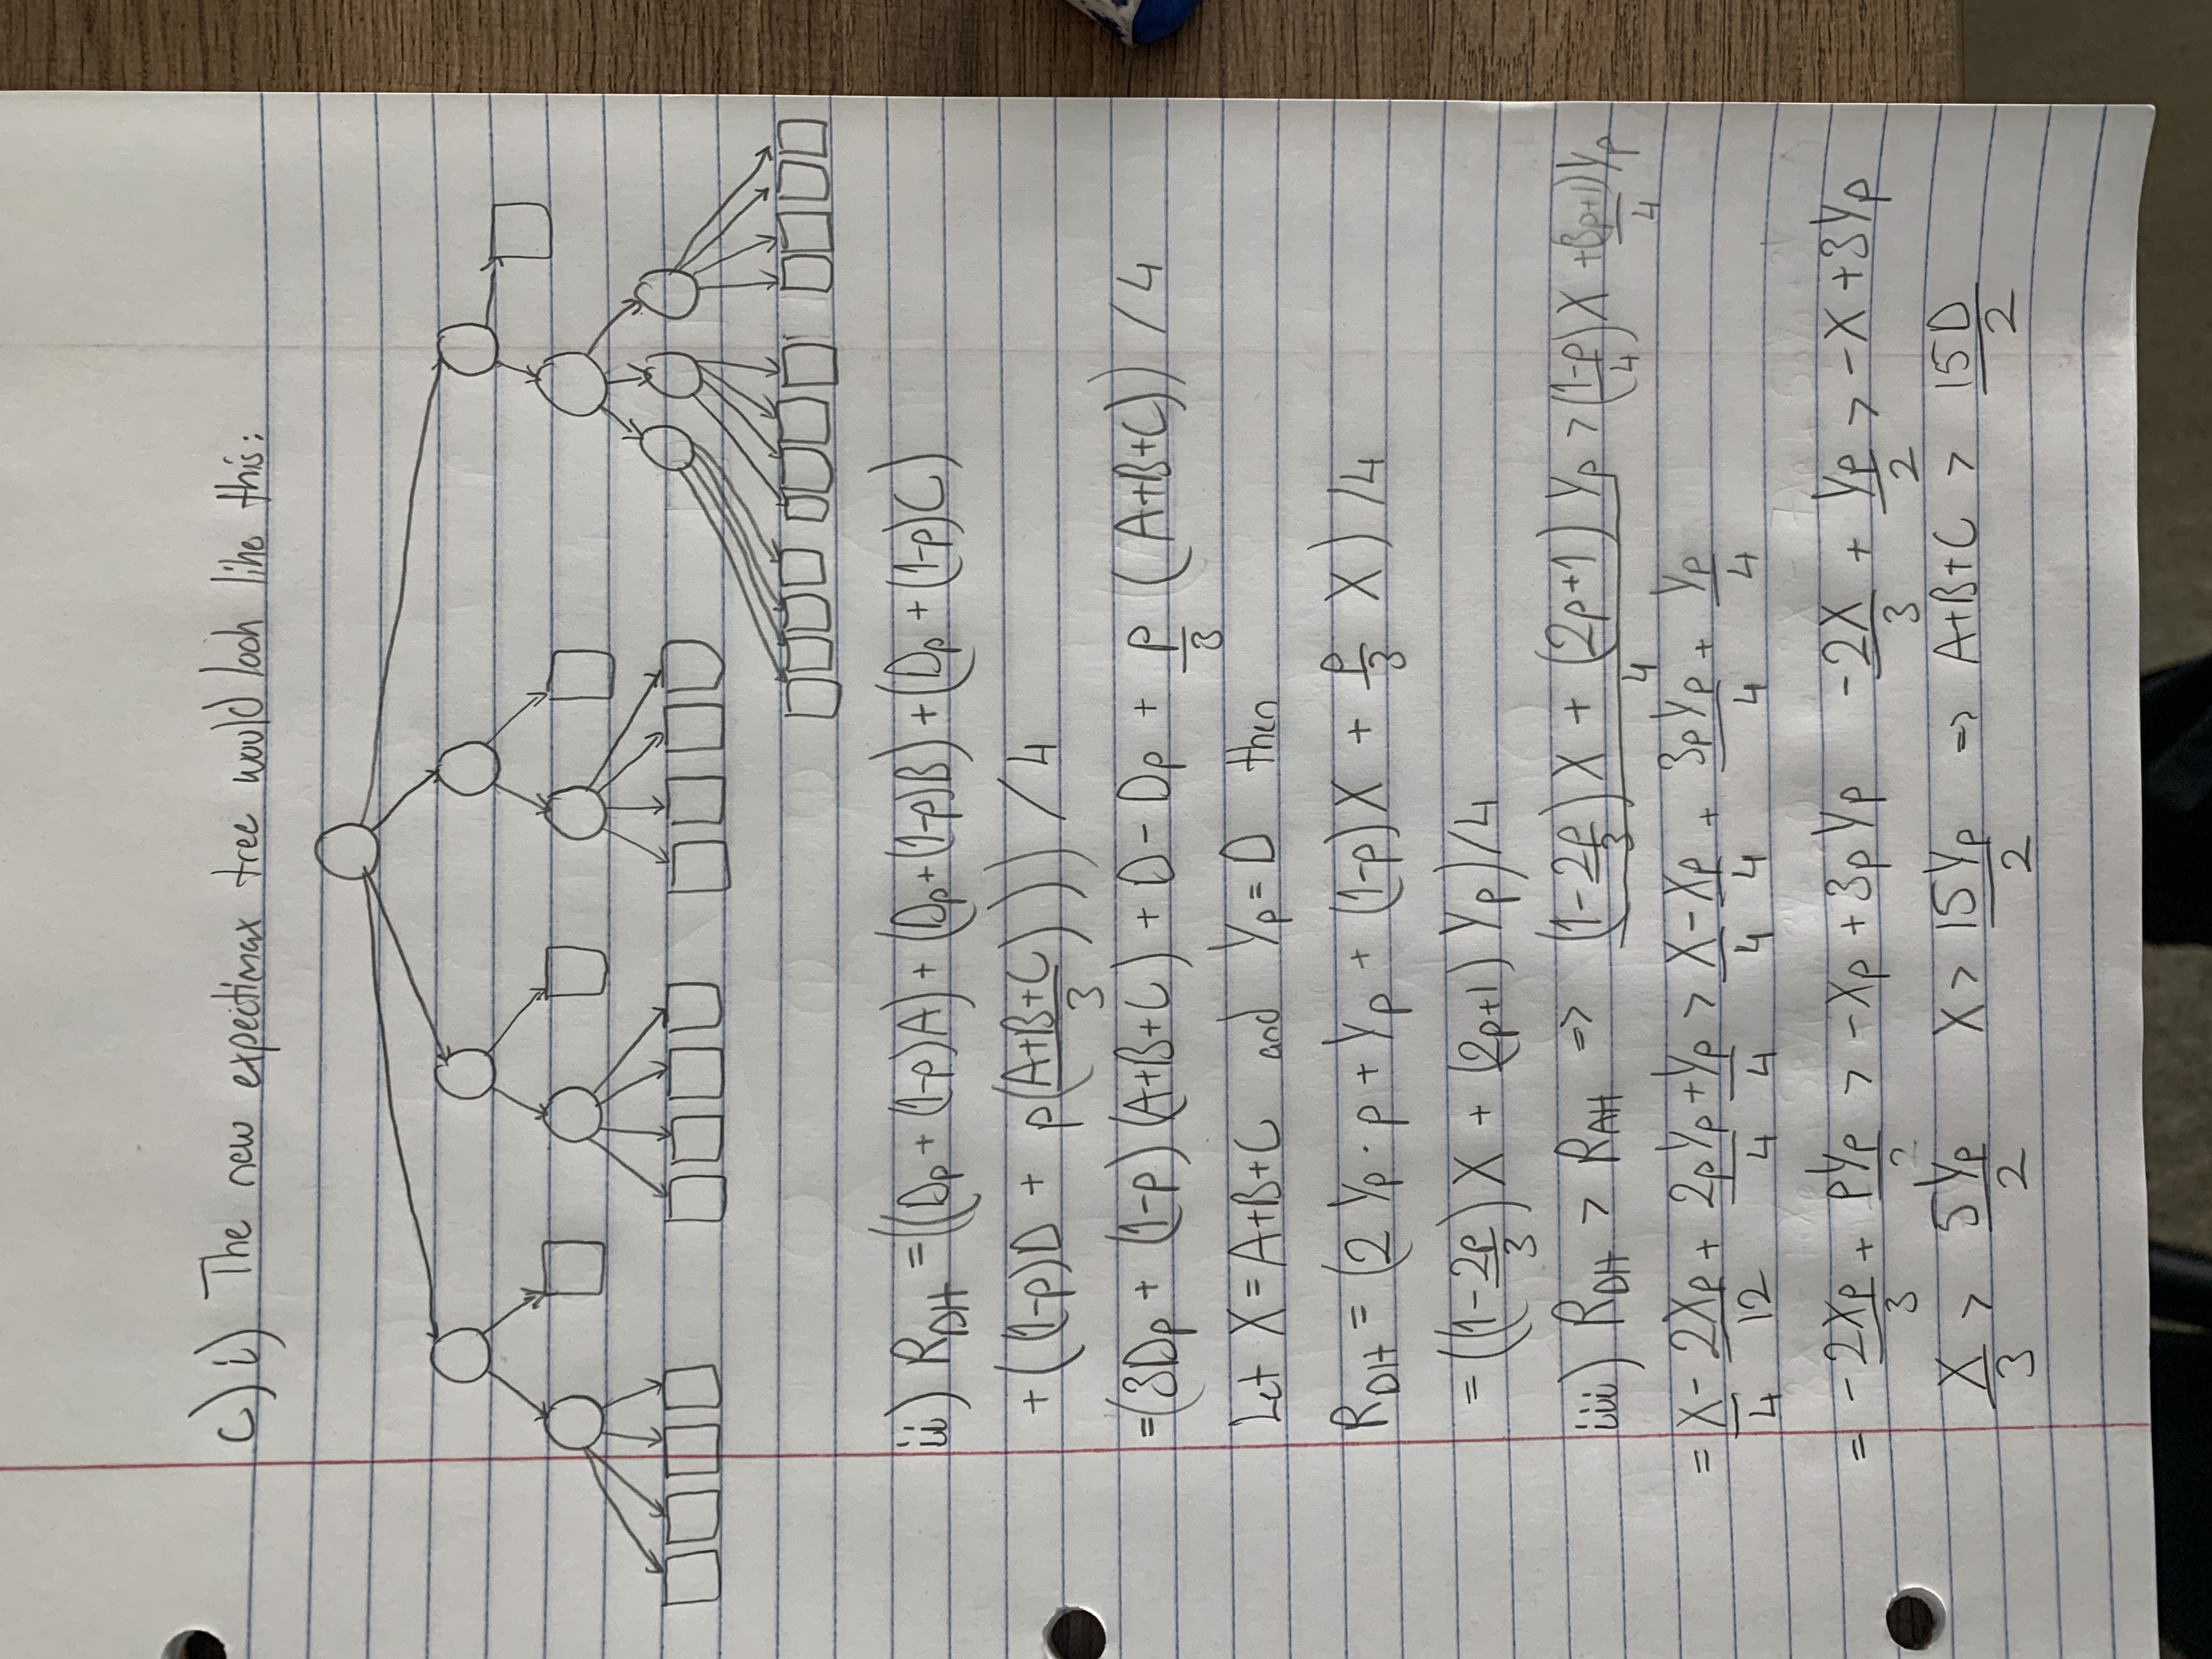 c) i) The new expectimax tree would look like this:
ii) R_DH = ((Dp + (1-p)A) + (Dp + (1-p)B) + (Dp + (1-p)C)
+ ((1-p)D + p(A+B+C)/3)) / 4
= (3Dp + (1-p)(A+B+C) + D - Dp + p/3 (A+B+C)) / 4
Let X = A+B+C and Yp = D then
R_DH = (2Yp · p + Yp + (1-p)X + p/3 X) / 4
= ((1 - 2p/3)X + (2p+1)Yp) / 4
iii) R_DH > R_AH => ((1 - 2p/3)X + (2p+1)Yp)/4 > (1-p)/4 X + (3p+1)/4 Yp
= X/4 - 2Xp/12 + 2pYp/4 + Yp/4 > X/4 - Xp/4 + 3pYp/4 + Yp/4
= -2Xp/3 + pYp/2 > -Xp + 3pYp -2X/3 + Yp/2 > -X + 3Yp
X/3 > 5Yp/2 X > 15Yp/2 => A+B+C > 15D/2